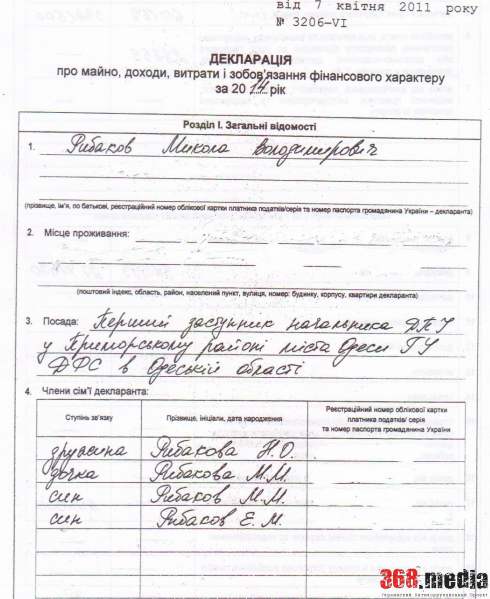 від 7 квітня 2011 року
№ 3206-VI
ДЕКЛАРАЦІЯ
про майно, доходи, витрати і зобов'язання фінансового характеру
за 2014 рік
Розділ I. Загальні відомості
1. Рибаков Микола Володимирович
(прізвище, ім'я, по батькові, реєстраційний номер облікової картки платника податків/серія та номер паспорта громадянина України – декларанта)
2. Місце проживання:
(поштовий індекс, область, район, населений пункт, вулиця, номер: будинку, корпусу, квартири декларанта)
3. Посада: Перший заступник начальника ДПІ
у Приморському районі міста Одеси ГУ
ДФС в Одеській області
4. Члени сім'ї декларанта:
Ступінь зв'язку
Прізвище, ініціали, дата народження
Реєстраційний номер облікової картки
платника податків/ серія
та номер паспорта громадянина України
дружина Рибакова Н.О.
дочка Рибакова М.М.
син Рибаков М.М.
син Рибаков Е.М.
368.media
Украинский Антикоррупционный Проект